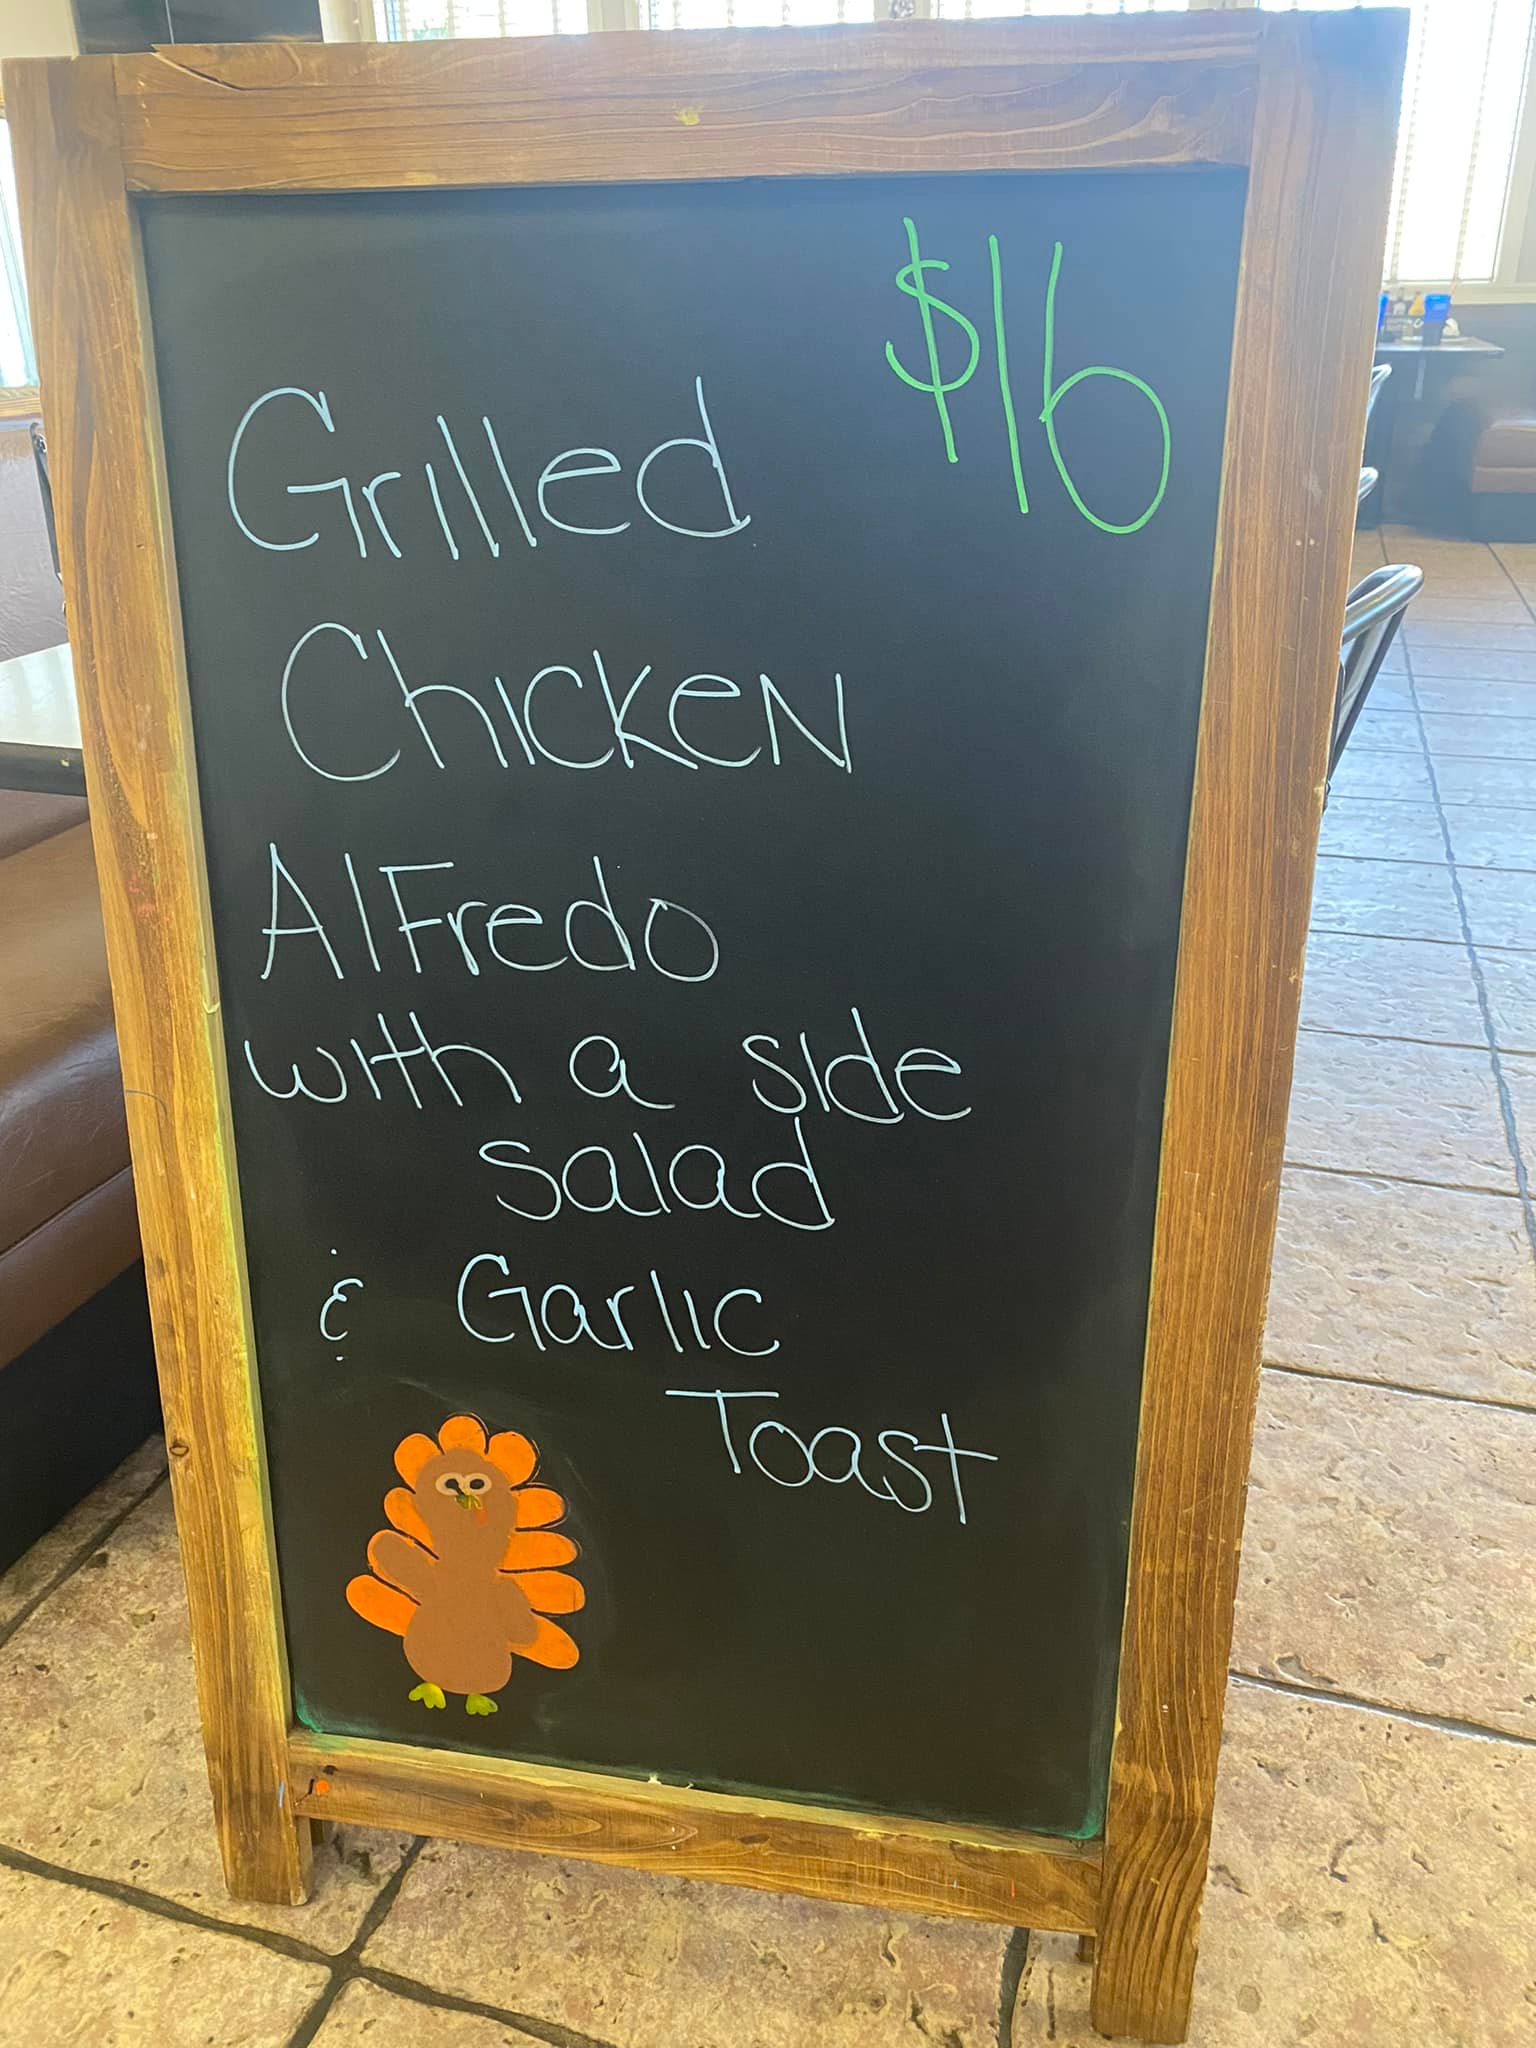 $16
Grilled
Chicken
Alfredo
with a side
salad
& Garlic
Toast